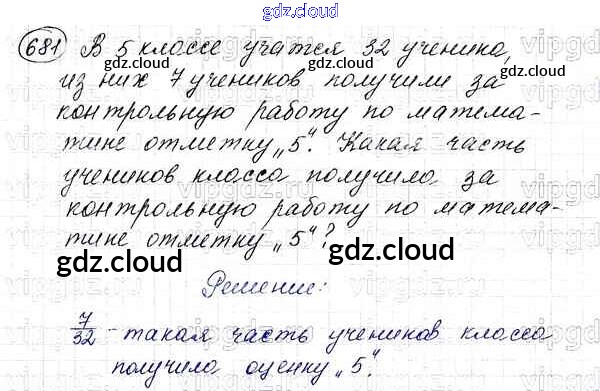 gdz.cloud
681 В 5 классе учатся 32 ученика,
из них 7 учеников получили за
контрольную работу по матема-
тике отметку „5“. Какая часть
учеников класса получила за
контрольную работу по матема-
тике отметку „5“?
Решение:
7/32 - такая часть учеников класса
получила оценку „5“.
gdz.cloud
gdz.cloud
gdz.cloud
gdz.cloud
gdz.cloud